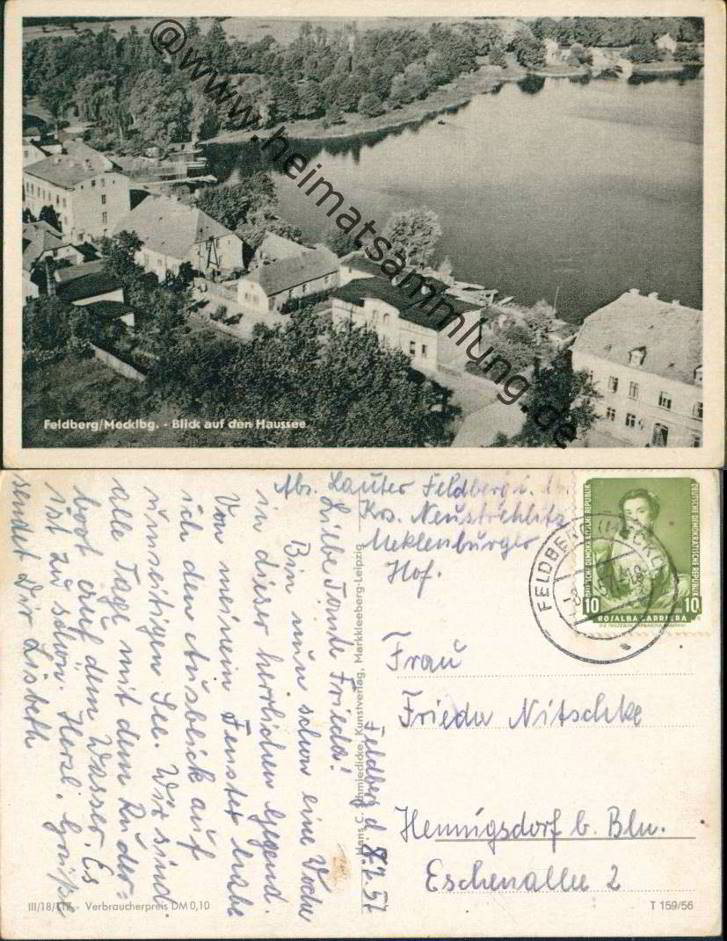 @www.heimatsammlung.de
Feldberg/Mecklbg. - Blick auf den Haussee
Abs. Lauter Feldberg i.
Krs. Neustrehlitz
Meklenburger
Hof.
Feldberg d. 8.7.57
Liebe Tante Frieda!
Bin nun schon eine Woche
in dieser herrlichen Gegend.
Von meinem Fenster habe
ich den Ausblick auf
umseitigen See. Wir sind
alle Tage mit dem Ruder-
boot auf dem Wasser. Es
ist zu schön. Herzl. Grüße
sendet Dir Lisbeth
Hans C. Schmiedicke, Kunstverlag, Markkleeberg-Leipzig
DEUTSCHE DEMOKRATISCHE REPUBLIK
DEUTSCHE DEMOKRATISCHE REPUBLIK
10 10
ROSALBA CARRIERA
FELDBERG (MECKL)
Frau
Frieda Nitschke
Hennigsdorf b. Bln.
Eschenallee 2
III/18/117 - Verbraucherpreis DM 0,10
T 159/56